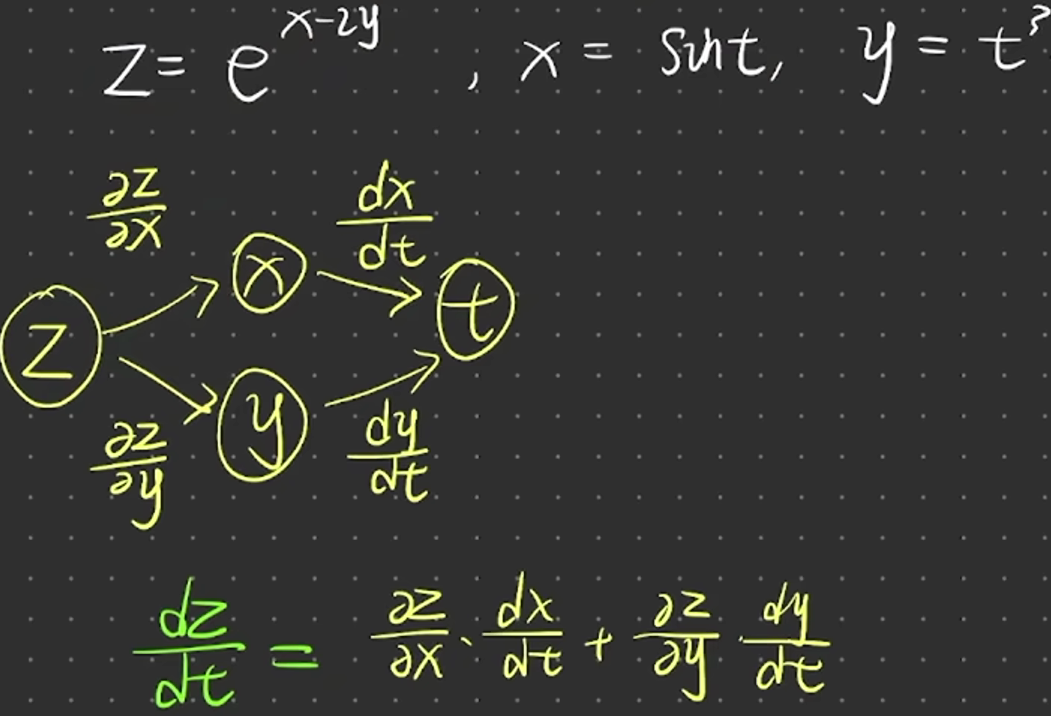 z = e^{x-2y} , x = sint, y = t^3
∂z/∂x dx/dt
x
z t
y
∂z/∂y dy/dt
dz/dt = ∂z/∂x · dx/dt + ∂z/∂y · dy/dt